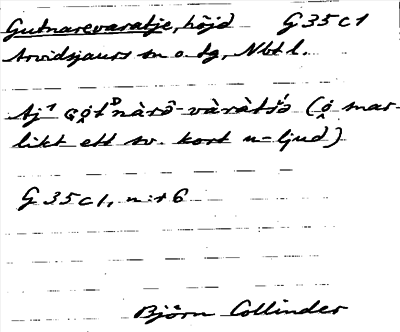 Gutnarevaratje, höjd G 35 c 1
Arvidsjaurs sn o. tg, Nbt l.
Aj¹ Gộtᴰnàrô-vàràtśɔ (ộ mar-
likt ett sv. kort u-ljud)
G 35 c 1, n:r 6
Björn Collinder